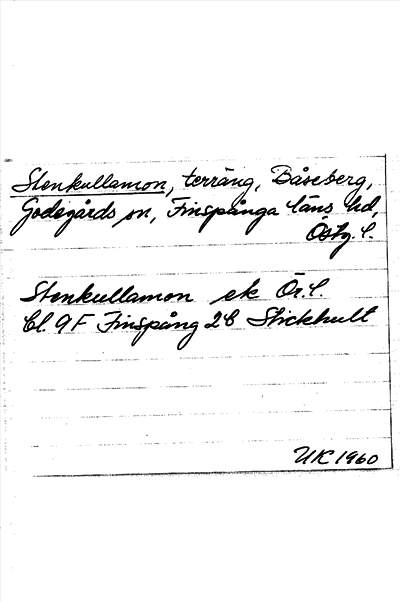 Stenkullamon, terräng, Båseberg,
Godegårds sn, Finspånga läns hd,
Östg. l.
Stenkullamon ek Ör.l.
bl. 9F Finspång 2b Stickhult
UK 1960